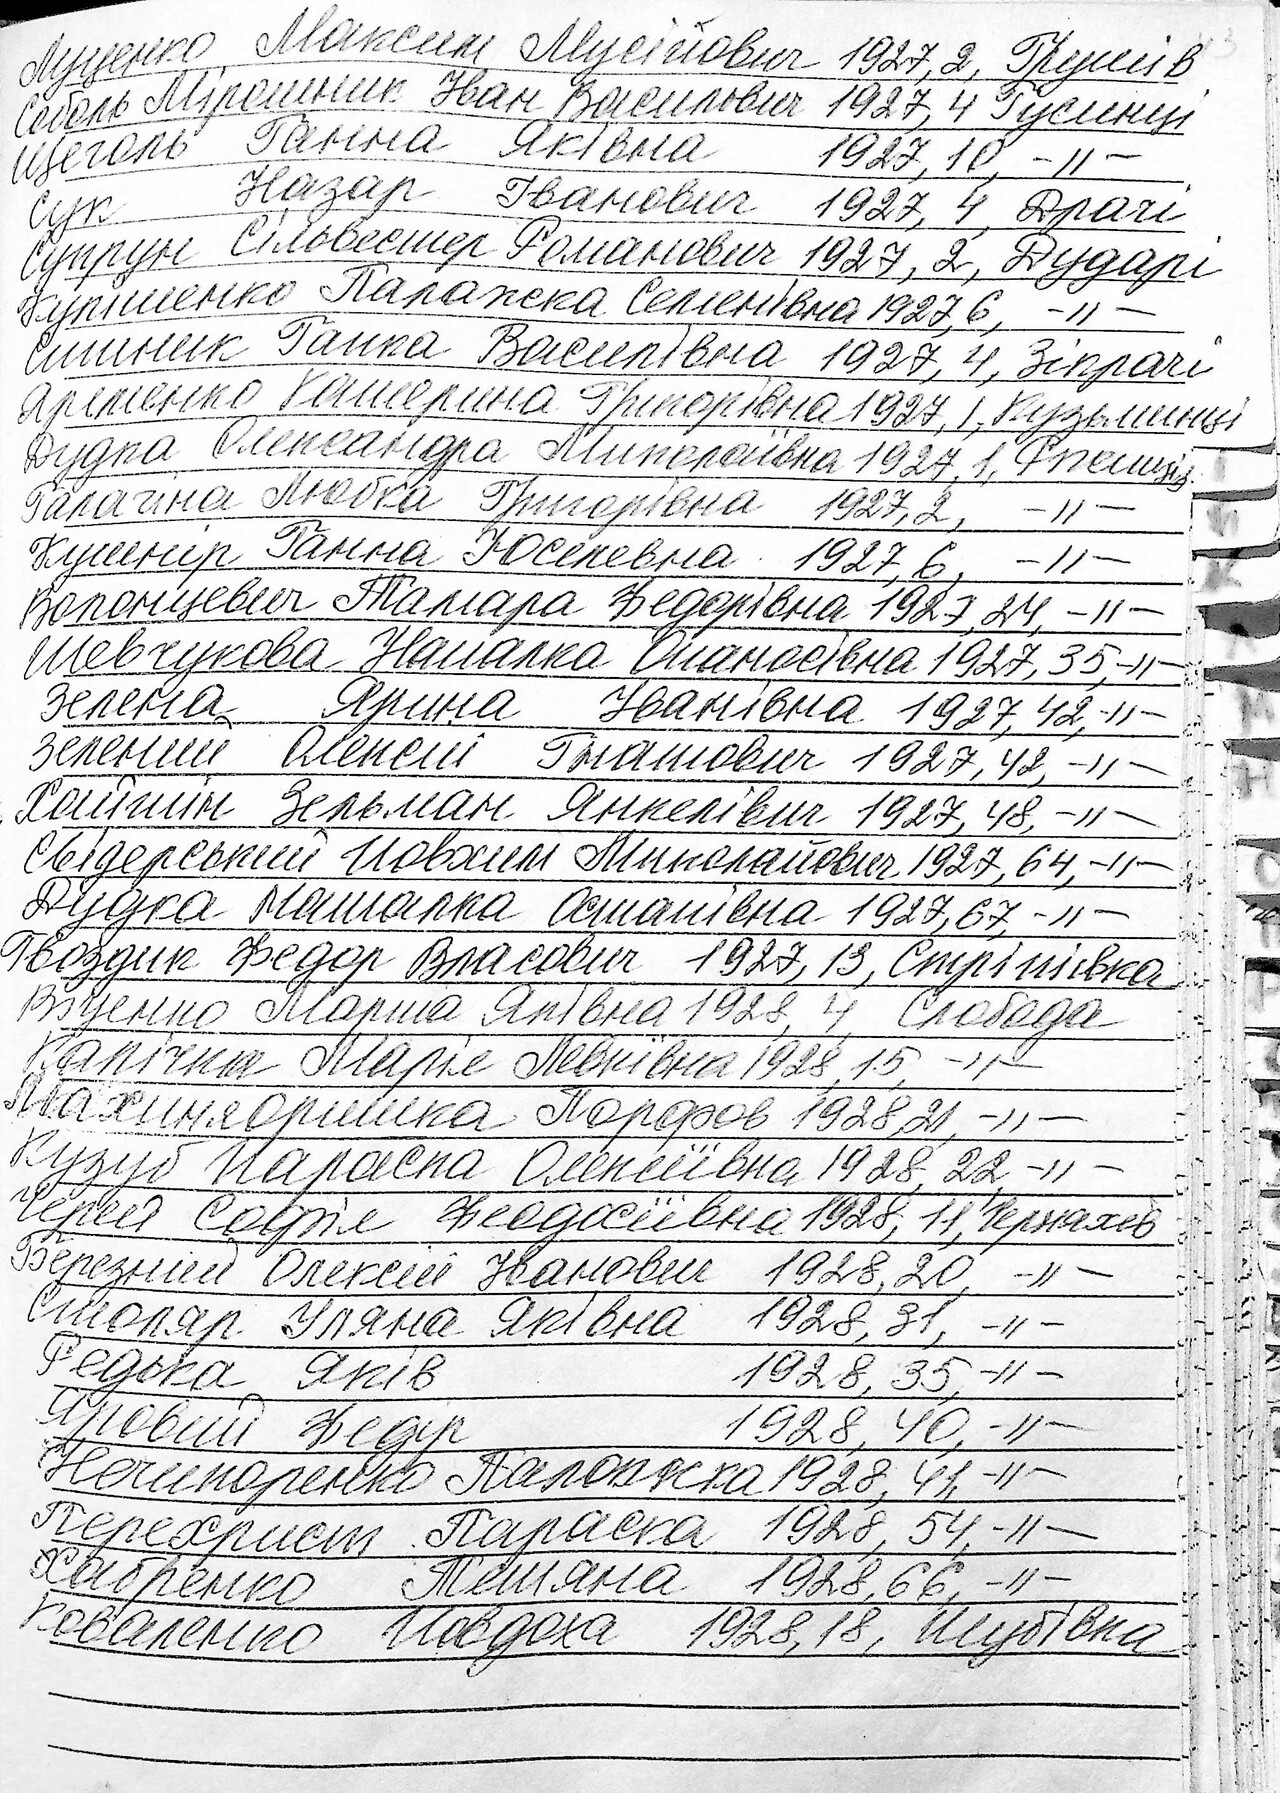 Луценко Максим Мусійович 1927, 2, Грушів
Соболь Мірошник Іван Васильович 1927, 4 Гусинці
Щеголь Ганна Яківна 1927, 10, -"-
Сук Назар Іванович 1927, 4, Драчі
Супрун Сільвестер Романович 1927, 2, Дударі
Палажска Семенівна 1927, 6, -"-
Ганка Василівна 1927, 4, Зікрачі
Яременко Катерина Григорівна 1927, 1, Кузьминці
Дудка Олександра Миколаївна 1927, 1,
Галагіна Любка Григорівна 1927, 2, -"-
Кушнір Ганна Юсепевна 1927, 6, -"-
Воронцевич Тамара Федорівна 1927, 24, -"-
Шевчукова Наталка Опанасівна 1927, 35, -"-
Зелена Ярина Іванівна 1927, 42, -"-
Зелений Олексій Гнатович 1927, 42, -"-
Хаймін Зельман Янкелівич 1927, 48, -"-
Свідерський Йовхим Миколайович 1927, 64, -"-
Дудка Наталка Остапівна 1927, 67, -"-
Гвоздик Федор Власович 1927, 13, Стрітівка
Марта Яківна 1928, 4, Слобода
Капічка Марія Левківна 1928, 15, -"-
Порфов 1928, 21, -"-
Кузуб Параска Олексіївна 1928, 22, -"-
Черей Софія Феодосіївна 1928, 11, Черняхів
Березний Олексій Іванович 1928, 20, -"-
Столяр Уляна Яківна 1928, 31, -"-
Редька Яків 1928, 35, -"-
Яровий Федір 1928, 40, -"-
Нечипоренко Палажска 1928, 41, -"-
Перехрист Параска 1928, 54, -"-
Хабренко Тетяна 1928, 66, -"-
Коваленко Йовдоха 1928, 18, Шубівка